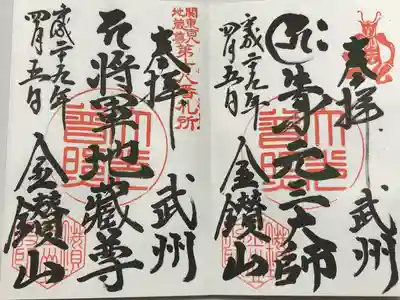 奉拝
武州
元三大師
平成二十九年
四月五日
金鑚山
関東百八
地蔵尊
第十八番札所
奉拝
武州
将軍地蔵尊
平成二十九年
四月五日
金鑚山